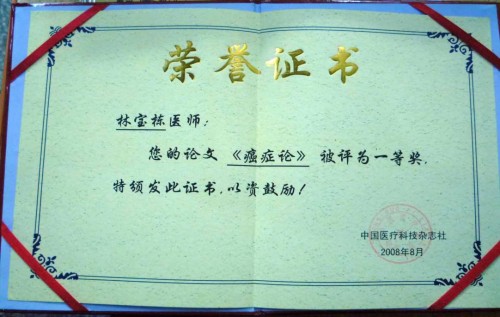 荣誉证书
林宝栋医师：
您的论文《癌症论》被评为一等奖，
特颁发此证书，以资鼓励！
中国医疗科技杂志社
2008年8月